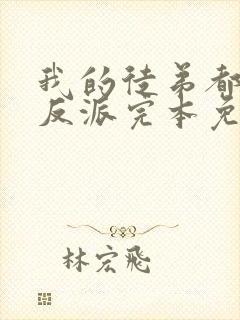 我的徒弟都
反派完本免
林宏飛